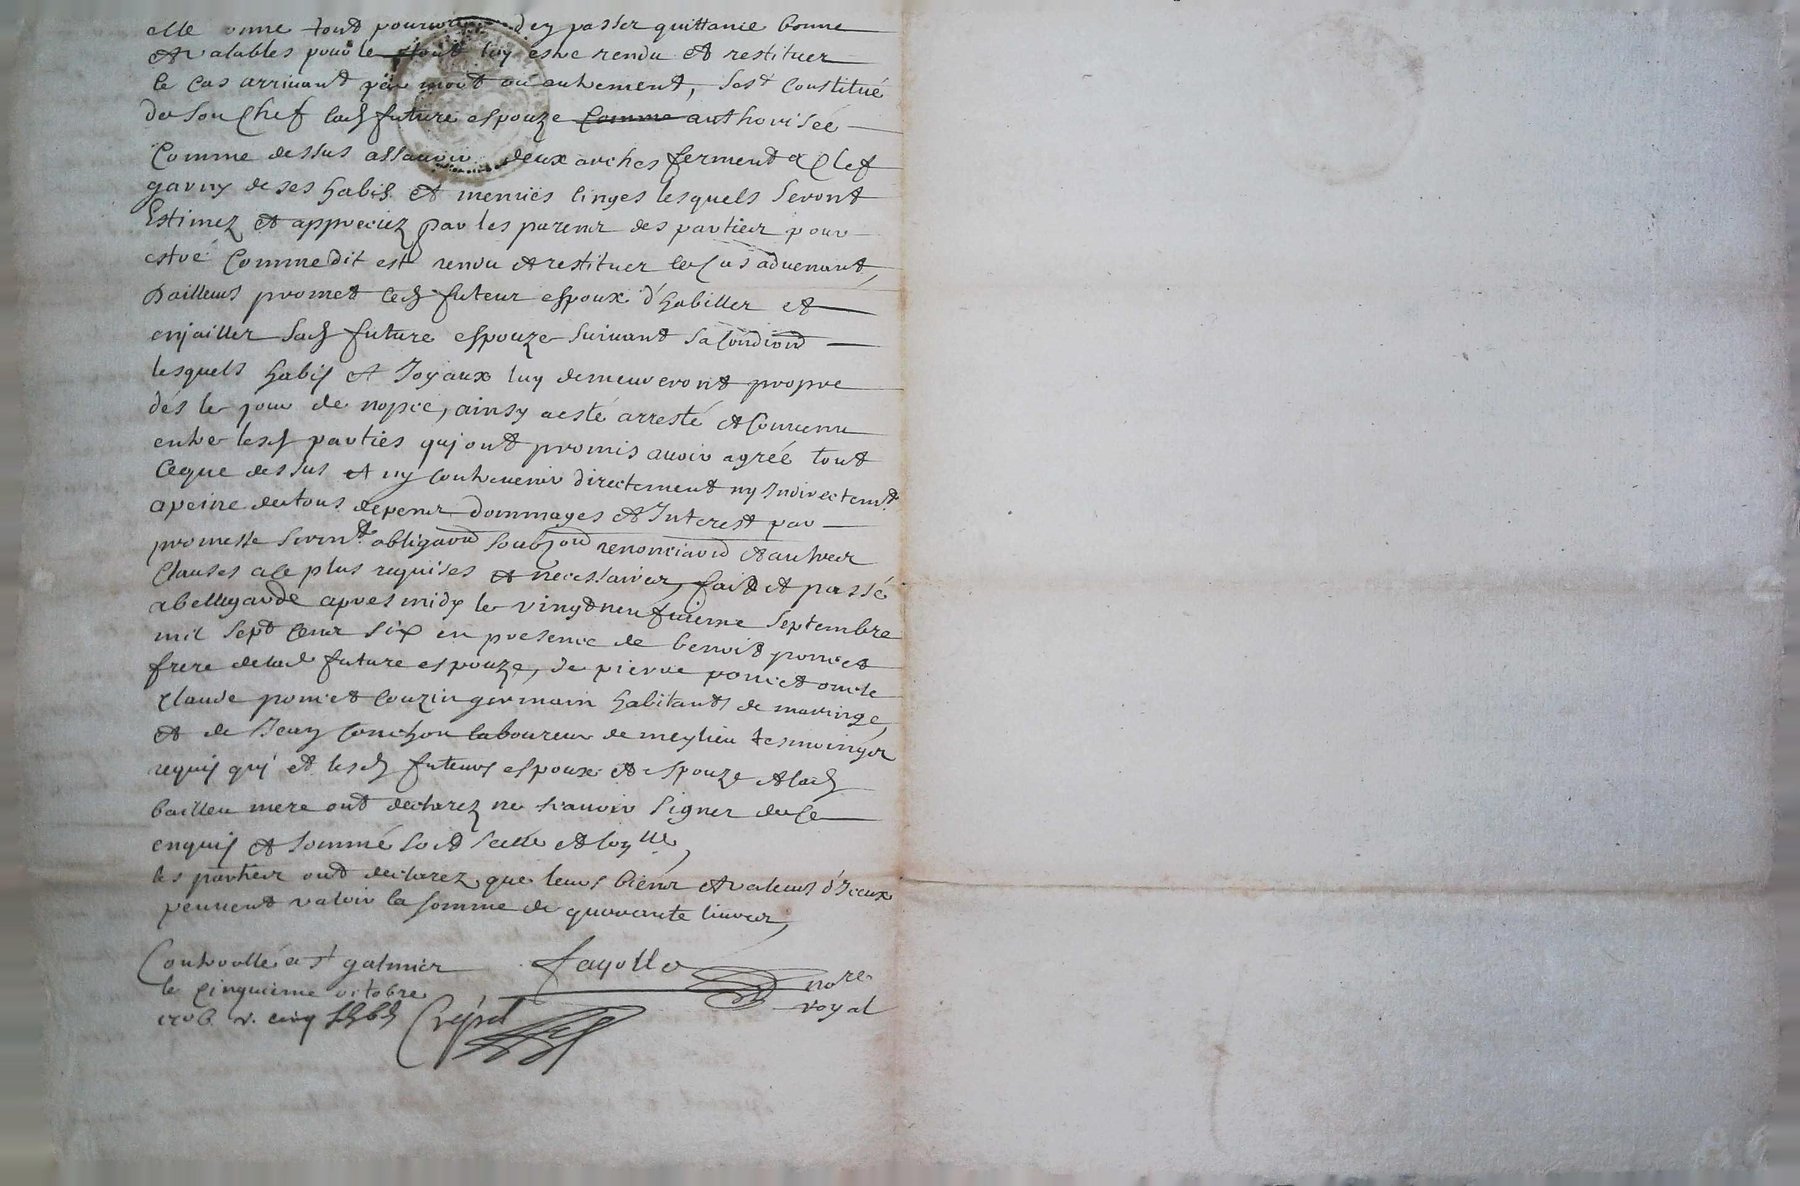 elle onne tout pouvoir d'en passer quittance bonne
et valables pour le tout luy estre rendu et restituer
le cas arrivant par mort ou autrement, sest constitué
de son chef lad future espouze comme authorisée
comme dessus assavoir deux arches ferment a clef
garny de ses habis et menües linges lesquels seront
Estimez et appreciez par les parens des parties pour
estre comme dit est rendu et restituer le cas advenant,
d'ailleurs promet led futeur espoux d'habiller et
enjoailler sad future espouze suivant sa condiond
lesquels habis et Joyaux luy demeureront propre
dés le jour de nopce, ainsy a esté arresté et convenu
entre lesd parties qui ont promis avoir agréé tout
ceque dessus et ny contrevenir directement ny Indirectemt
a peine de tous depens dommages et Interest par
promesse sermt obligaond soubzond renonciaond et autres
clauses a ce plus requises et necessaires, fait et passé
a bellegarde apres midy le vingt neufvieme septembre
mil sept cens six en presence de benoit poncet
frere de lad future espouze, de pierre poncet oncle
claude poncet couzin germain habitants de maringe
et de Jean conchon laboureur de meylieu tesmoings
requis qui et lesd futeurs espoux et espouze et lad
bailleu mere ont declarez ne scavoir signer de ce
enquis et sommé soit scellé et
les parties ont declarez que leurs biens et valeurs d'Iceux
peuvent valoir la somme de quarante livres,
Controollé a st galmier
le cinquieme octobre
1706 r. cinq
fayolle nore
royal
Crépet